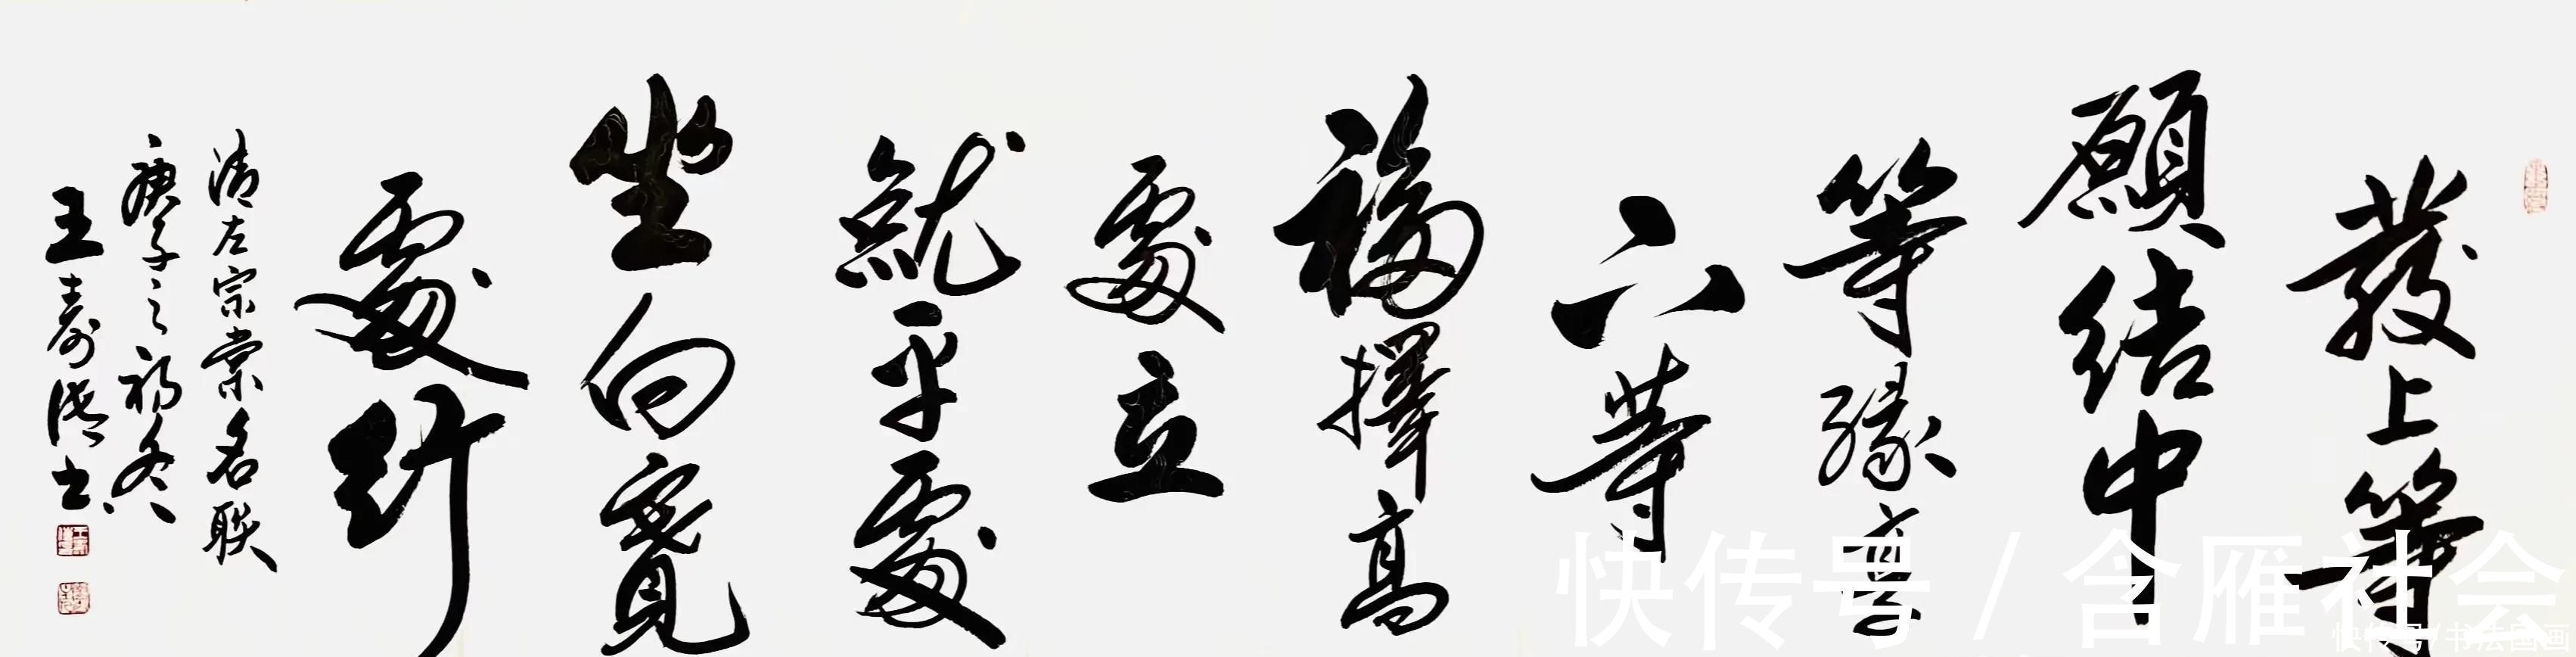 發上等
願結中
等緣享
下等
福擇高
處立
就平處
坐向寬
處行
清左宗棠名联
庚子之初冬
王壽书
快传号 / 含雁社会
快传号/书法国画